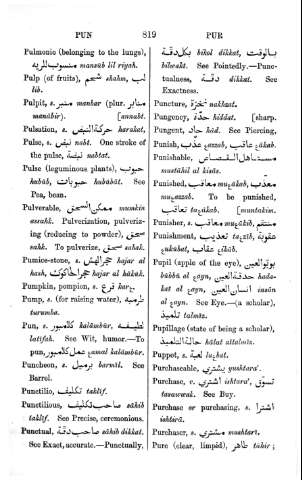 PUN 819 PUR
Pulmonic (belonging to the lungs),
منسوب للريه mansúb lil riyah.
Pulp (of fruits), شحم shahm, لب
lib.
Pulpit, s. منبر manbar (plur. منابر
manábir). [annabt.
Pulsation, s. حركة النبض harakat,
Pulse, s. نبض nabt. One stroke of
the pulse, نبضة nabtat.
Pulse (leguminous plants), حبوب
hubúb, حبوبات hubúbát. See
Pea, bean.
Pulverable, ممكن السحق mumkin
assahk. Pulverization, pulveriz-
ing (reducing to powder), سحق
sahk. To pulverize, سحق sahak.
Pumice-stone, حجر الهش hajar al
hash, حجر الحاكوك hajar al hákúk.
Pumpkin, pompion, s. قرع karǎ.
Pump, s. (for raising water), طرمبه
turumba.
Pun, s. كلامبور kalámbúr, لطيفه
latífah. See Wit, humor.—To
pun, عمل كلامبور ǎamal kalámbúr.
Puncheon, s. برميل barmíl. See
Barrel.
Punctilio, تكليف taklíf.
Punctilious, صاحب تكليف sáhib
taklíf. See Precise, ceremonious.
Punctual, صاحب دقة sáhib dikkat.
See Exact, accurate.—Punctually,
بكل دقة bikol dikkat, بالوقت
bilwakt. See Pointedly.—Punc-
tualness, دقة dikkat. See
Exactness.
Puncture, نخزة nakhzat.
Pungency, حدة hiddat. [sharp.
Pungent, حاد hád. See Piercing,
Punish, عذب ǎazzab, عاقب ǎákab.
Punishable, مستاهل القصاص
mustáhil al kisás.
Punished, معاقب muǎákab, معذب
muǎazzab. To be punished,
تعاقب taǎákab. [muntakim.
Punisher, s. معاقب muǎákib, منتقم
Punishment, تعذيب taǎzíb, عقوبة
ǎukúbat, عقاب ǎikáb.
Pupil (apple of eye), بوبو العين
búbbú al ǎayn, حدقة العين hada-
kat al ǎayn, انسان العين insán
al ǎayn. See Eye.—(a scholar),
تلميذ talmíz.
Pupillage (state of being a scholar),
حالة التلميذ hálat attalmíz.
Puppet, s. لعبة luǎbat.
Purchaseable, يشترى yushtara'.
Purchase, v. اشترى ishtara', تسوق
tasawwak. See Buy.
Purchase or purchasing, s. اشترا
ishtirá.
Purchaser, s. مشتري mushtarí.
Pure (clear, limpid), طاهر táhir;